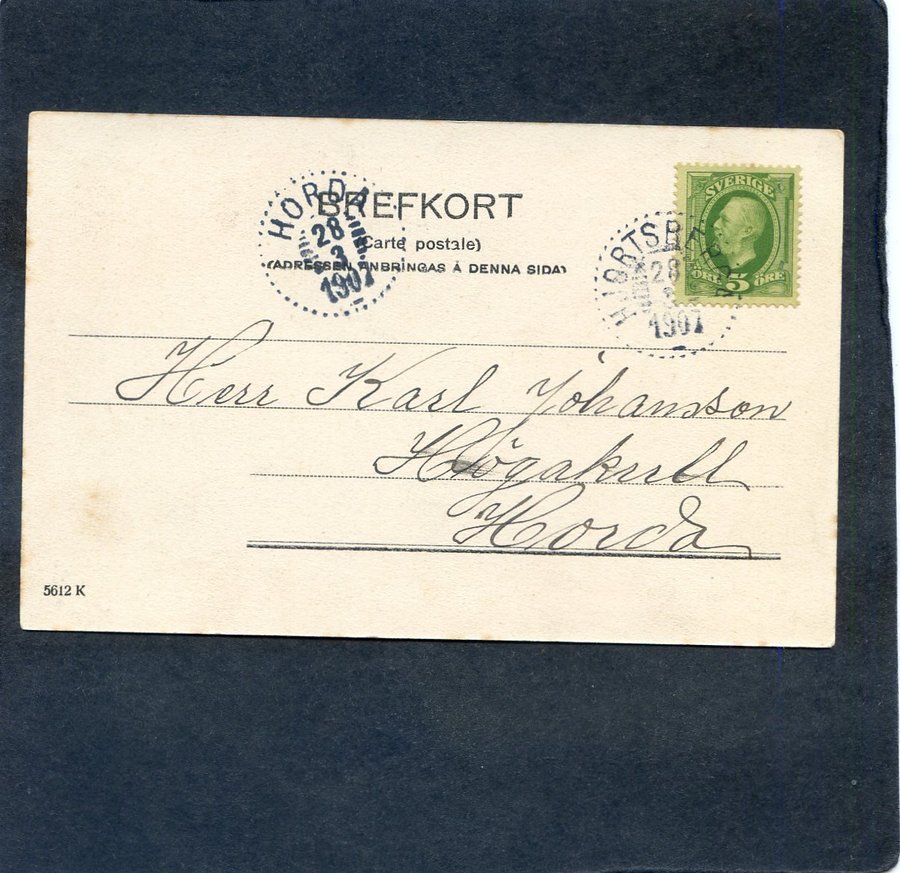 BREFKORT
(Carte postale)
(ADRESSEN ANBRINGAS Å DENNA SIDA)
HORDA
28
3
1907
SVERIGE
5 ÖRE
28
1907
Herr Karl Johansson
Högakull
Horda
5612 K